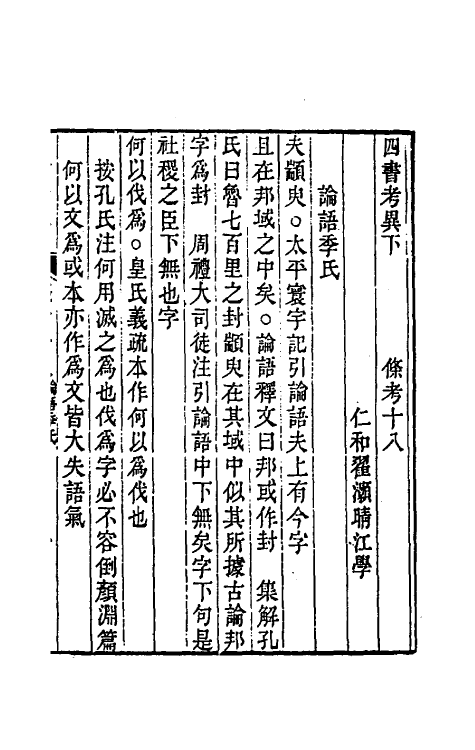 四書考異下　條考十八
仁和翟灝晴江學
論語季氏
夫顓臾○太平寰宇記引論語夫上有今字
且在邦域之中矣○論語釋文曰邦或作封　集解孔
氏曰魯七百里之封顓臾在其域中似其所據古論邦
字爲封　周禮大司徒注引論語中下無矣字下句是
社稷之臣下無也字
何以伐爲○皇氏義疏本作何以爲伐也
按孔氏注何用滅之爲也伐爲字必不容倒顏淵篇
何以文爲或本亦作爲文皆大失語氣
論語季氏